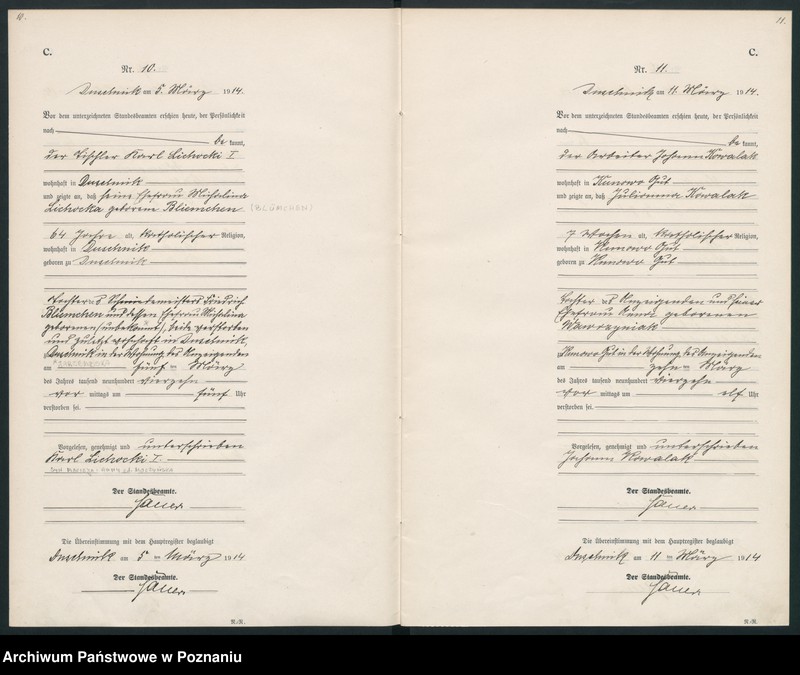 10.
C.
Nr. 10.
Duschnik am 5. März 1914.
Vor dem unterzeichneten Standesbeamten erschien heute, der Persönlichkeit
nach
be kannt,
der Tischler Karl Lichocki I
wohnhaft in Duschnik
und zeigte an, daß seine Ehefrau Michalina
Lichocka geborene Bliemchen (BLÜMCHEN)
64 Jahre alt, katholischer Religion,
wohnhaft in Duschnik
geboren zu Duschnik
Tochter des Schmiedemeisters Friedrich
Bliemchen und dessen Ehefrau Michalina
geborenen (unbekannt), beide verstorben
und zuletzt wohnhaft in Duschnik,
zu Duschnik in der Wohnung des Anzeigenden
am fünf ten März
des Jahres tausend neunhundert vierzehn
vor mittags um fünf Uhr
verstorben sei.
Vorgelesen, genehmigt und unterschrieben
Karl Lichocki I.
Der Standesbeamte.
Die Übereinstimmung mit dem Hauptregister beglaubigt
Duschnik am 5 ten März 1914
Der Standesbeamte.
R.-R.
11.
C.
Nr. 11.
Duschnik am 11. März 1914.
Vor dem unterzeichneten Standesbeamten erschien heute, der Persönlichkeit
nach
be kannt,
der Arbeiter Johann Kowalak
wohnhaft in Kunowo Gut
und zeigte an, daß Julianna Kowalak
7 Wochen alt, katholischer Religion,
wohnhaft in Kunowo Gut
geboren zu Kunowo Gut
Tochter des Anzeigenden und seiner
Ehefrau geborenen
Wawrzyniak
zu Kunowo Gut in der Wohnung des Anzeigenden
am zehn ten März
des Jahres tausend neunhundert vierzehn
vor mittags um elf Uhr
verstorben sei.
Vorgelesen, genehmigt und unterschrieben
Johann Kowalak
Der Standesbeamte.
Die Übereinstimmung mit dem Hauptregister beglaubigt
Duschnik am 11 ten März 1914
Der Standesbeamte.
R.-R.
Archiwum Państwowe w Poznaniu